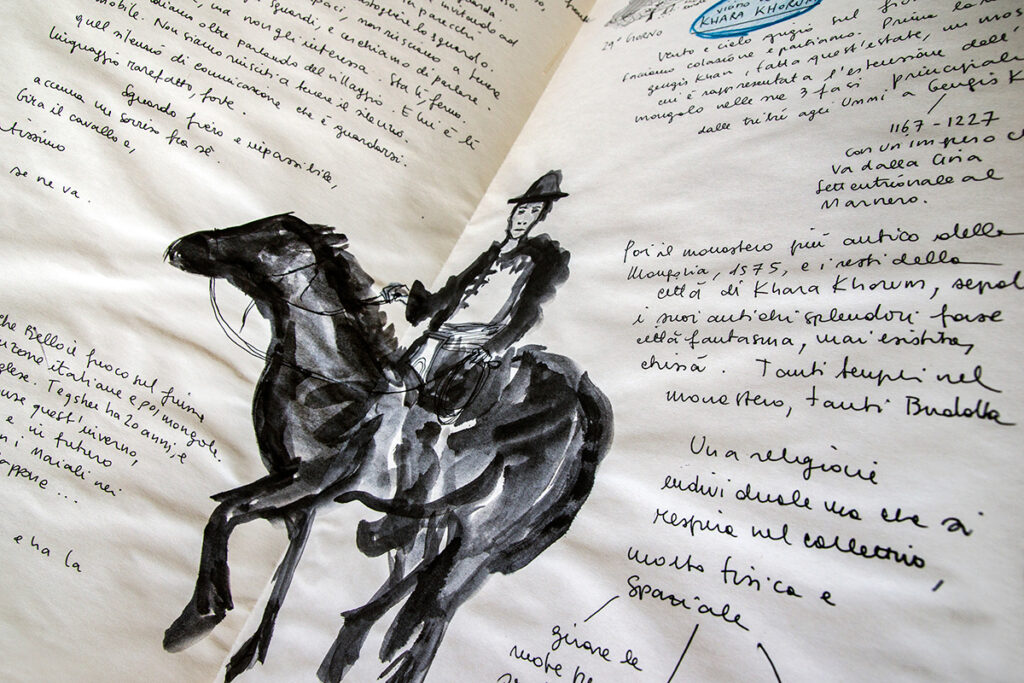 invitando ad
in parecchi.
lo sguardo.
paci, non riusciamo a tenere
sguardi, e cerchiamo di parlare.
, ma non gli interessa. Sta lì, fermo
oltre parlando del villaggio. E lui è lì
mobile. Non siamo riusciti a tenere il silenzio,
quel silenzio di comunicazione che è guardarsi.
linguaggio rarefatto, forse.
Sguardo fiero e impassibile,
accenna un sorriso fra sé.
Gira il cavallo e,
tissimo
se ne va.
che bello il fuoco sul fiume
canzone italiane e poi mongole.
glese. Tegsher ha 20 anni, e
quest'inverno,
e in futuro
n i maiali nei
appone ...
e ha la
viano
KHARA KHORUM
29° GIORNO
Vento e cielo grigio sul
Facciamo colazione e partiamo. Prima
gengis Khan, fatta quest'estate, un mos
cui è rappresentata l'estensione dell'
mongolo nelle sue 3 fasi principali
dalle tribù agli Unni a Gengis K
1167-1227
con un impero c
va dalla Cina
Settentrionale al
Mar nero.
Poi il monastero più antico della
Mongolia, 1575, e i resti della
città di Khara Khorum, sepol
i suoi antichi splendori forse
città fantasma, mai esistita,
chissà. Tanti templi nel
monastero, tanti Buddha
Una religione
individuale ma che si
respira nel collettivo,
molto fisica e
spaziale
girare le